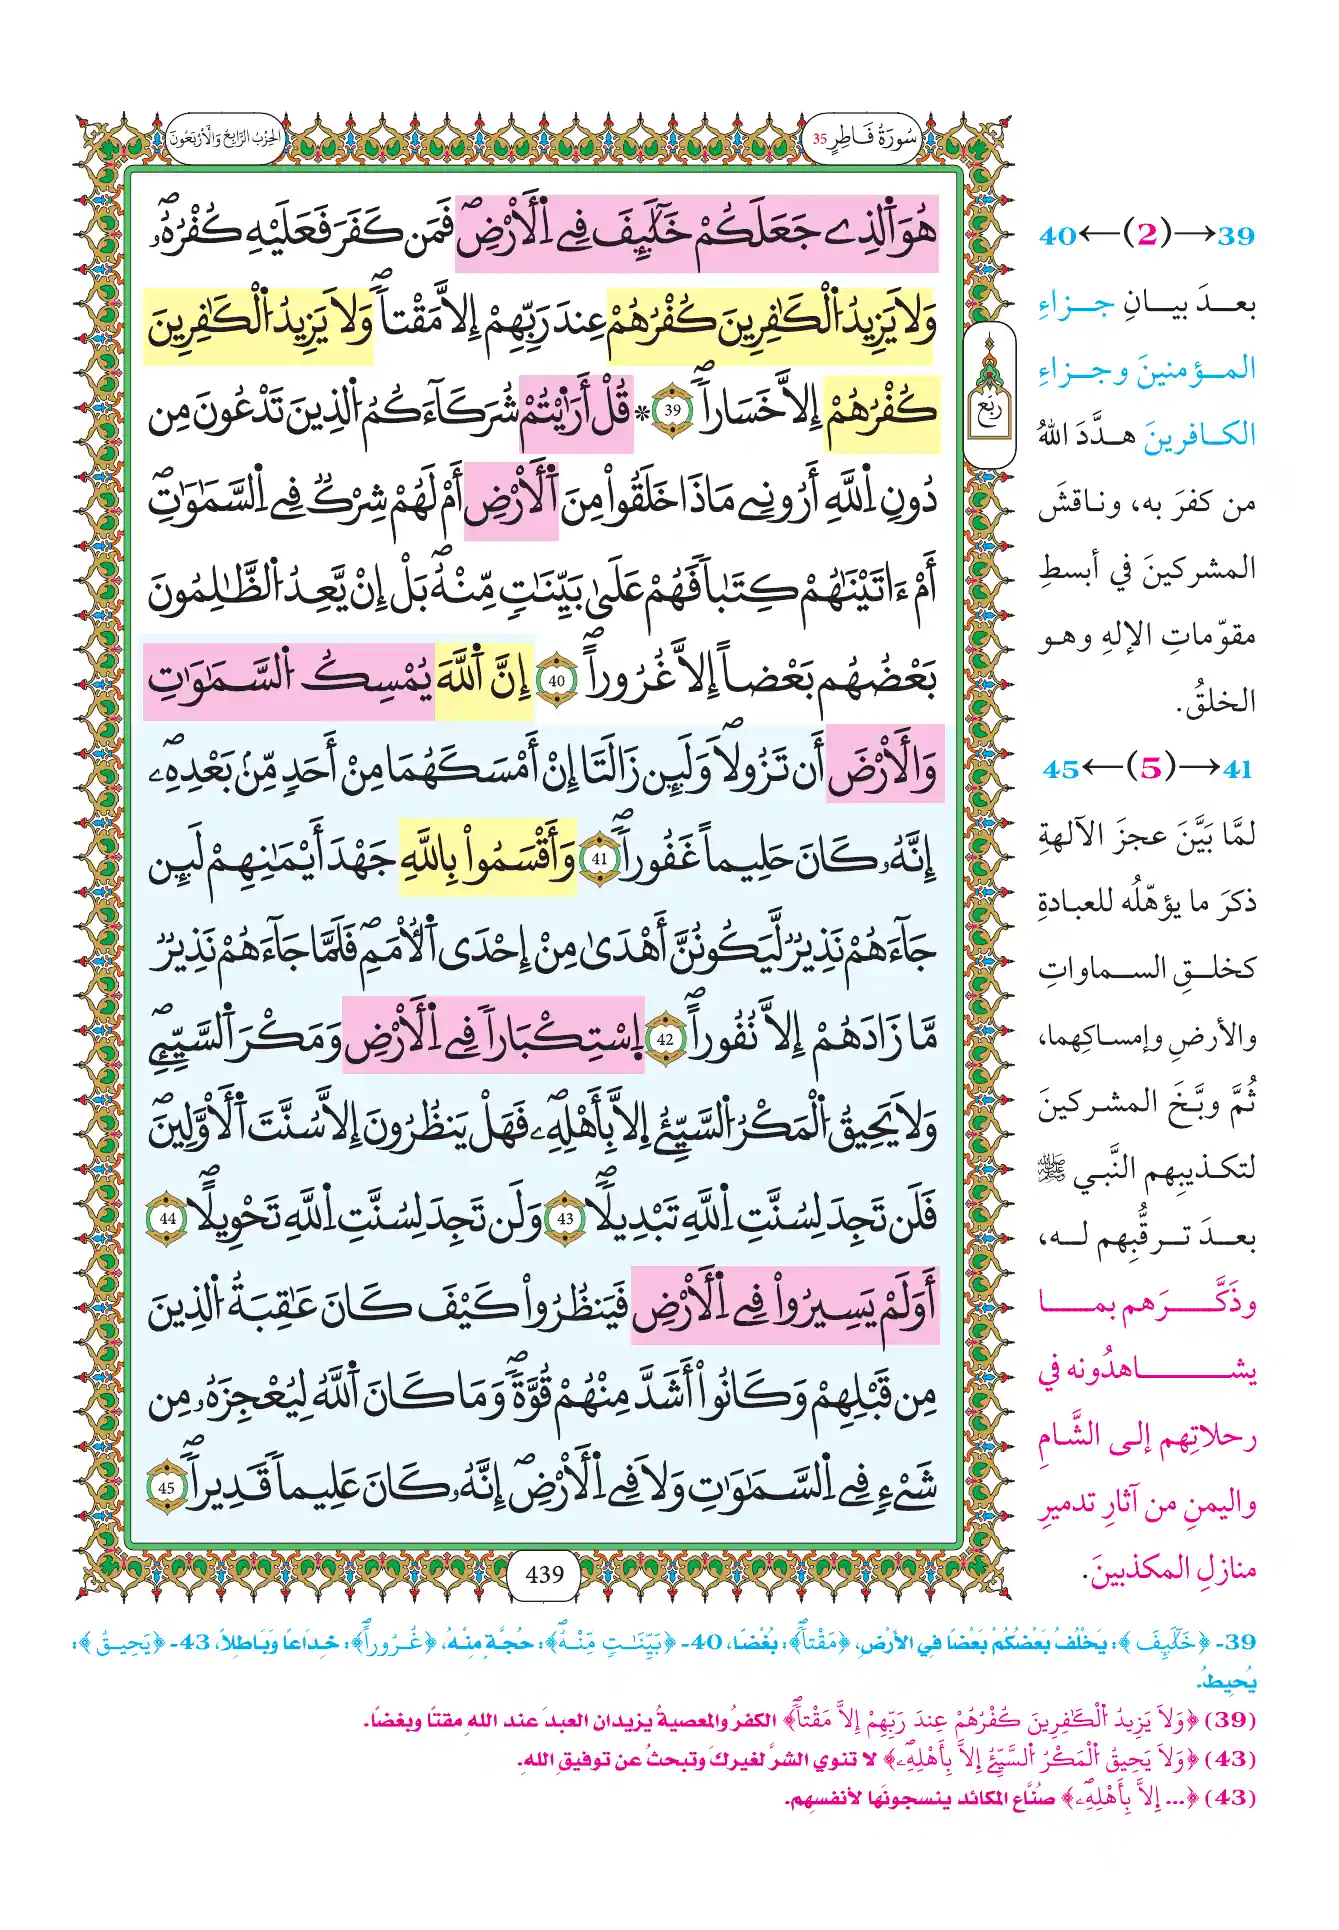 سُورَةُ فَاطِرٍ 35
الحِزْبُ الرَّابِعُ وَالأَرْبَعُونَ
هُوَ اَ۬لذِے جَعَلَكُمْ خَلَٰٓئِفَ فِے اِ۬لَارْضِۖ فَمَن كَفَرَ فَعَلَيْهِ كُفْرُهُۥۖ
وَلَا يَزِيدُ اُ۬لْكَٰفِرِينَ كُفْرُهُمْ عِندَ رَبِّهِمْ إِلَّا مَقْتاٗۖ وَلَا يَزِيدُ اُ۬لْكَٰفِرِينَ
كُفْرُهُمْ إِلَّا خَسَاراٗۖ 39 * قُلَ اَرَٰٓيْتُمْ شُرَكَآءَكُمُ اُ۬لذِينَ تَدْعُونَ مِن
دُونِ اِ۬للَّهِ أَرُونِے مَاذَا خَلَقُواْ مِنَ اَ۬لَارْضِ أَمْ لَهُمْ شِرْكٞ فِے اِ۬لسَّمَٰوَٰتِۖ
أَمَ اٰتَيْنَٰهُمْ كِتَٰباٗ فَهُمْ عَلَىٰ بَيِّنَٰتٖ مِّنْهُۖ بَلِ اِنْ يَّعِدُ اُ۬لظَّٰلِمُونَ
بَعْضُهُم بَعْضاً اِلَّا غُرُوراًۖ 40 إِنَّ اَ۬للَّهَ يُمْسِكُ اُ۬لسَّمَٰوَٰتِ
وَالَارْضَ أَن تَزُولَاۖ وَلَئِن زَالَتَا إِنَ اَمْسَكَهُمَا مِنَ اَحَدٖ مِّنۢ بَعْدِهِۦٓۖ
إِنَّهُۥ كَانَ حَلِيماً غَفُوراٗۖ 41 وَأَقْسَمُواْ بِاللَّهِ جَهْدَ أَيْمَٰنِهِمْ لَئِن
جَآءَهُمْ نَذِيرٞ لَّيَكُونُنَّ أَهْدَىٰ مِنِ اِحْدَى اَ۬لُامَمِۖ فَلَمَّا جَآءَهُمْ نَذِيرٞ
مَّا زَادَهُمُ إِلَّا نُفُوراًۖ 42 اِ۪سْتِكْبَاراٗ فِے اِ۬لَارْضِ وَمَكْرَ اَ۬لسَّيِّےِٕۖ
وَلَا يَحِيقُ اُ۬لْمَكْرُ اُ۬لسَّيِّئُ إِلَّا بِأَهْلِهِۦۖ فَهَلْ يَنظُرُونَ إِلَّا سُنَّتَ اَ۬لَاوَّلِينَۖ
فَلَن تَجِدَ لِسُنَّتِ اِ۬للَّهِ تَبْدِيلاٗۖ 43 وَلَن تَجِدَ لِسُنَّتِ اِ۬للَّهِ تَحْوِيلاًۖ 44
أَوَلَمْ يَسِيرُواْ فِے اِ۬لَارْضِ فَيَنظُرُواْ كَيْفَ كَانَ عَٰقِبَةُ اُ۬لذِينَ
مِن قَبْلِهِمْ وَكَانُواْ أَشَدَّ مِنْهُمْ قُوَّةٗۖ وَمَا كَانَ اَ۬للَّهُ لِيُعْجِزَهُۥ مِن
شَےْءٖ فِے اِ۬لسَّمَٰوَٰتِ وَلَا فِے اِ۬لَارْضِۖ إِنَّهُۥ كَانَ عَلِيماٗ قَدِيراٗۖ 45
رُبْع
439
39→(2)←40
بعدَ بيانِ جزاءِ
المؤمنينَ وجزاءِ
الكافرينَ هدَّدَ اللهُ
من كفرَ به، وناقشَ
المشركينَ في أبسطِ
مقوّماتِ الإلهِ وهو
الخلقُ.
41→(5)←45
لمَّا بَيَّنَ عجزَ الآلهةِ
ذكرَ ما يؤهّلُه للعبادةِ
كخلقِ السماواتِ
والأرضِ وإمساكِهما،
ثُمَّ وبَّخَ المشركينَ
لتكذيبِهم النَّبي ﷺ
بعدَ ترقُّبِهم له،
وذَكَّرَهم بما
يشاهدُونه في
رحلاتِهم إلى الشَّامِ
واليمنِ من آثارِ تدميرِ
منازلِ المكذبينَ.
39- ﴿خَلَٰٓئِفَ﴾: يَخْلُفُ بَعْضُكُمْ بَعْضًا فِي الأَرْضِ، ﴿مَقْتاٗۖ﴾: بُغْضًا، 40- ﴿بَيِّنَٰتٖ مِّنْهُۖ﴾: حُجَّةٍ مِنْهُ، ﴿غُرُوراًۖ﴾: خِدَاعًا وَبَاطِلاً، 43- ﴿يَحِيقُ﴾:
يُحِيطُ.
(39) ﴿وَلَا يَزِيدُ اُ۬لْكَٰفِرِينَ كُفْرُهُمْ عِندَ رَبِّهِمْ إِلَّا مَقْتاٗۖ﴾ الكفرُ والمعصيةُ يزيدان العبدَ عند اللهِ مقتًا وبغضًا.
(43) ﴿وَلَا يَحِيقُ اُ۬لْمَكْرُ اُ۬لسَّيِّئُ إِلَّا بِأَهْلِهِۦۖ﴾ لا تنوي الشرَّ لغيركَ وتبحثُ عن توفيقِ اللهِ.
(43) ﴿... إِلَّا بِأَهْلِهِۦۖ﴾ صُنَّاع المكائد ينسجونَها لأنفسِهم.